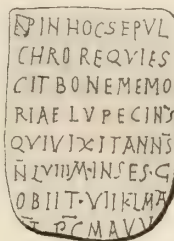 IN HOC SEPVL
CHRO REQVIES
CIT BONE MEMO
RIAE LVPECINVS
QVI VIXIT ANNS
N̄ LVIIII M·INSES·G
OBIIT·VII KL MA
P̄C MAVV